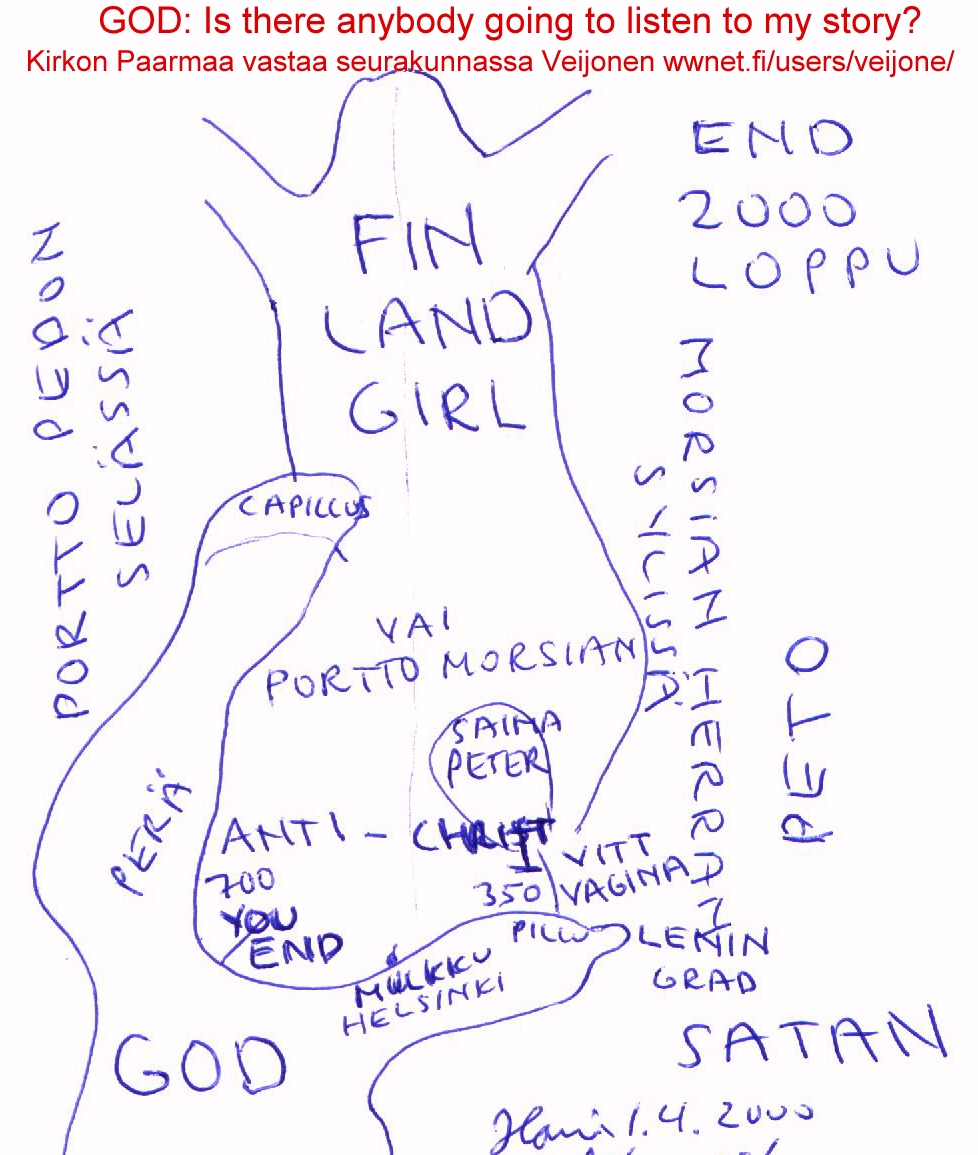 GOD: Is there anybody going to listen to my story?
Kirkon Paarmaa vastaa seurakunnassa Veijonen wwnet.fi/users/veijone/
END
2000
LOPPU
FIN
LAND
GIRL
PORTTO PEDON
SELÄSSÄ
MORSIAN HERRAN
SYLISSÄ
CAPILLUS
VAI
PORTTO MORSIAN
PETO
SAIMA
PETER
PERÄ
ANTI - CHRIST
I
700
YOU
END
350
VITT
VAGINA
PILLU
LENIN
GRAD
MULKKU
HELSINKI
GOD
SATAN
1.4. 2000